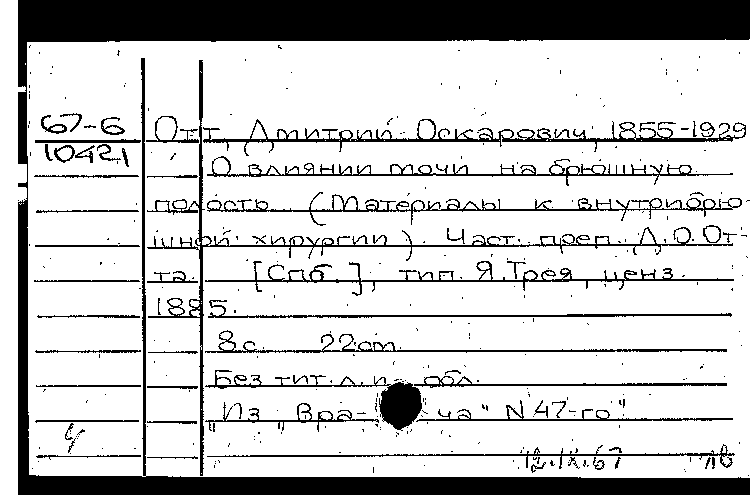 67-6 Отт, Дмитрий Оскарович, 1855-1929
10421 О влиянии мочи на брюшную
полость (Материалы к внутрибрю-
шной хирургии). Част. преп. Д.О.От-
та. [Спб.], тип. Я.Трея, ценз.
1885.
8с. 22cm.
Без тит.л.и обл.
„Из „Вра- ча" N47-го"
12.IX.67 лв